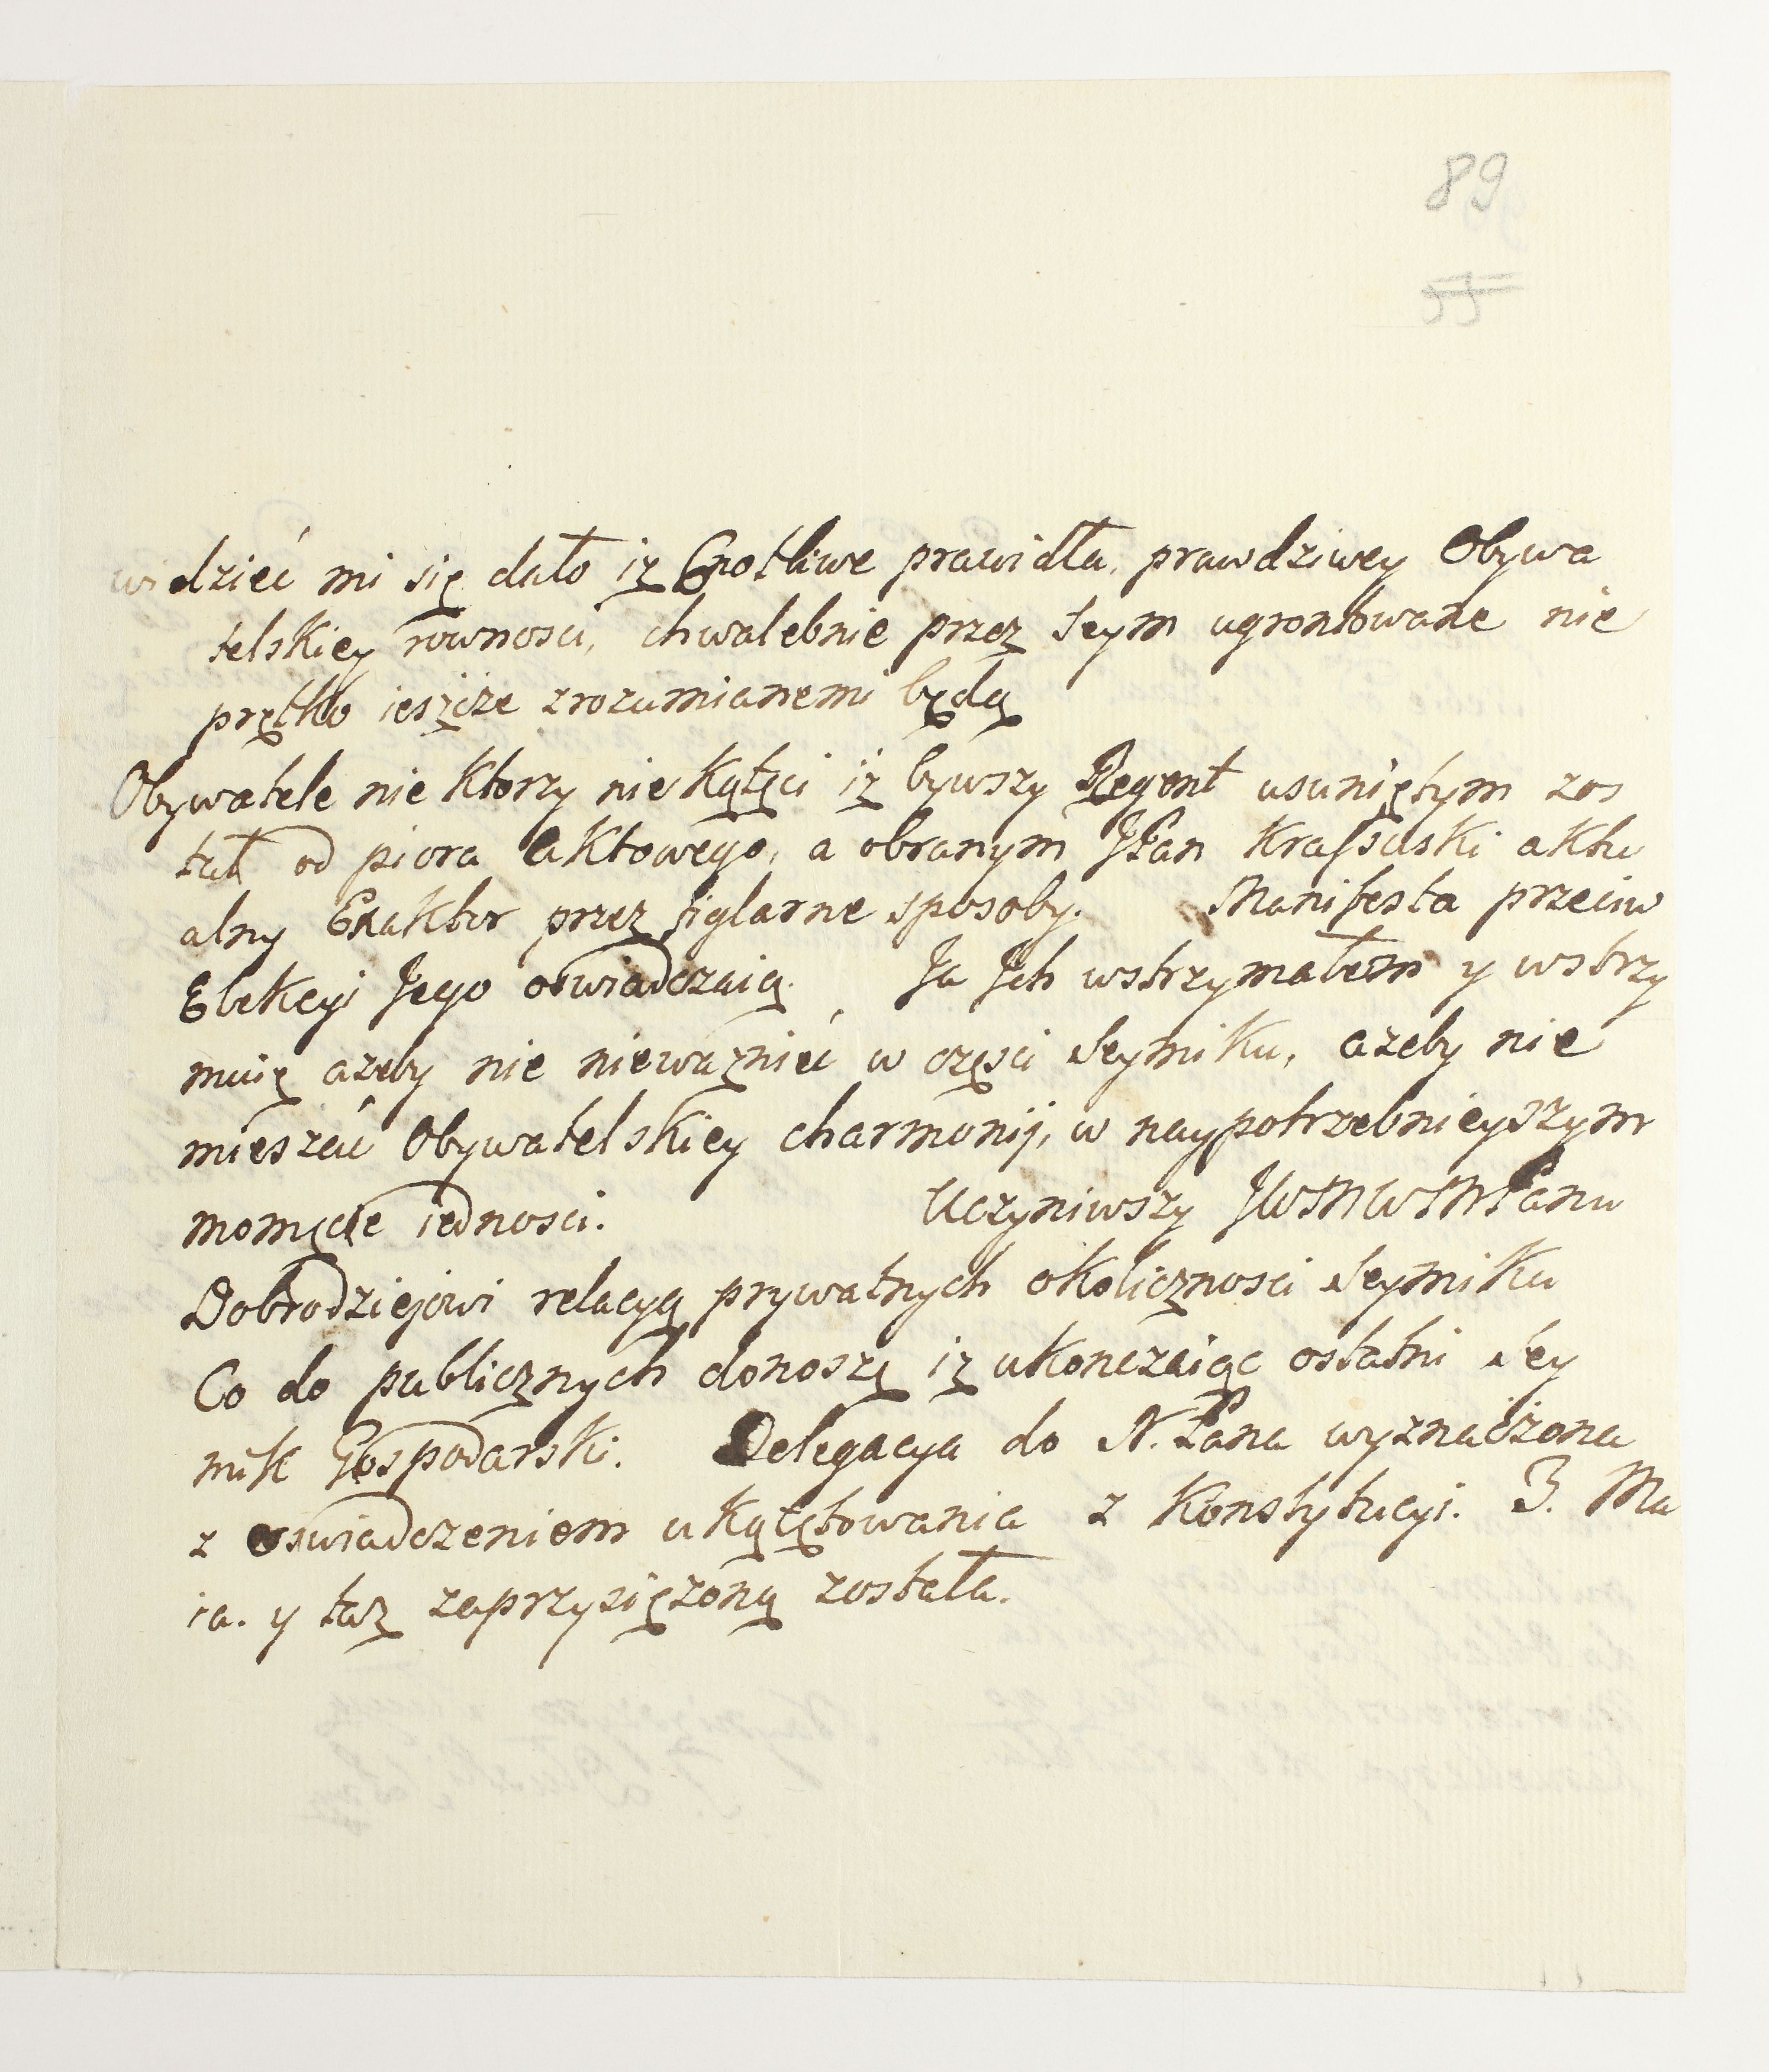 89
55
widzieć mi się dało iż Cnotliwe prawidła, prawdziwey Obywa
telskiey rownosci, chwalebnie przez Seym ugrontowane nie
prętko ieszcze zrozumianemi będą
Obywatele nie ktorzy nie kątęci iż bywszy Regent usuniętym zos
tał od piora aktowego, a obranym JPan Krassuski aktu
alny Exaktor przez figlarne sposoby. Manifesta przeciw
Elekcyi Jego oswiadczaią. Ja Jch wstrzymałem y wstrzy
muię azeby nie niewaznieć w częsci Seymiku, azeby nie
mieszać Obywatelskiey charmonij, w naypotrzebnieyszym
momęcie iednosci. Uczyniwszy JWMWMPanu
Dobrodziejowi relacyą prywatnych okolicznosci Seymiku
Co do publicznych donoszę iż ukonczaiąc ostatni Sey
mik Gospodarski. Delegacya do N. Pana wyznaczona
z oswiadczeniem ukątętowania z Konstytucyi. 3. Ma
ia. y taż zaprzysięzoną została.